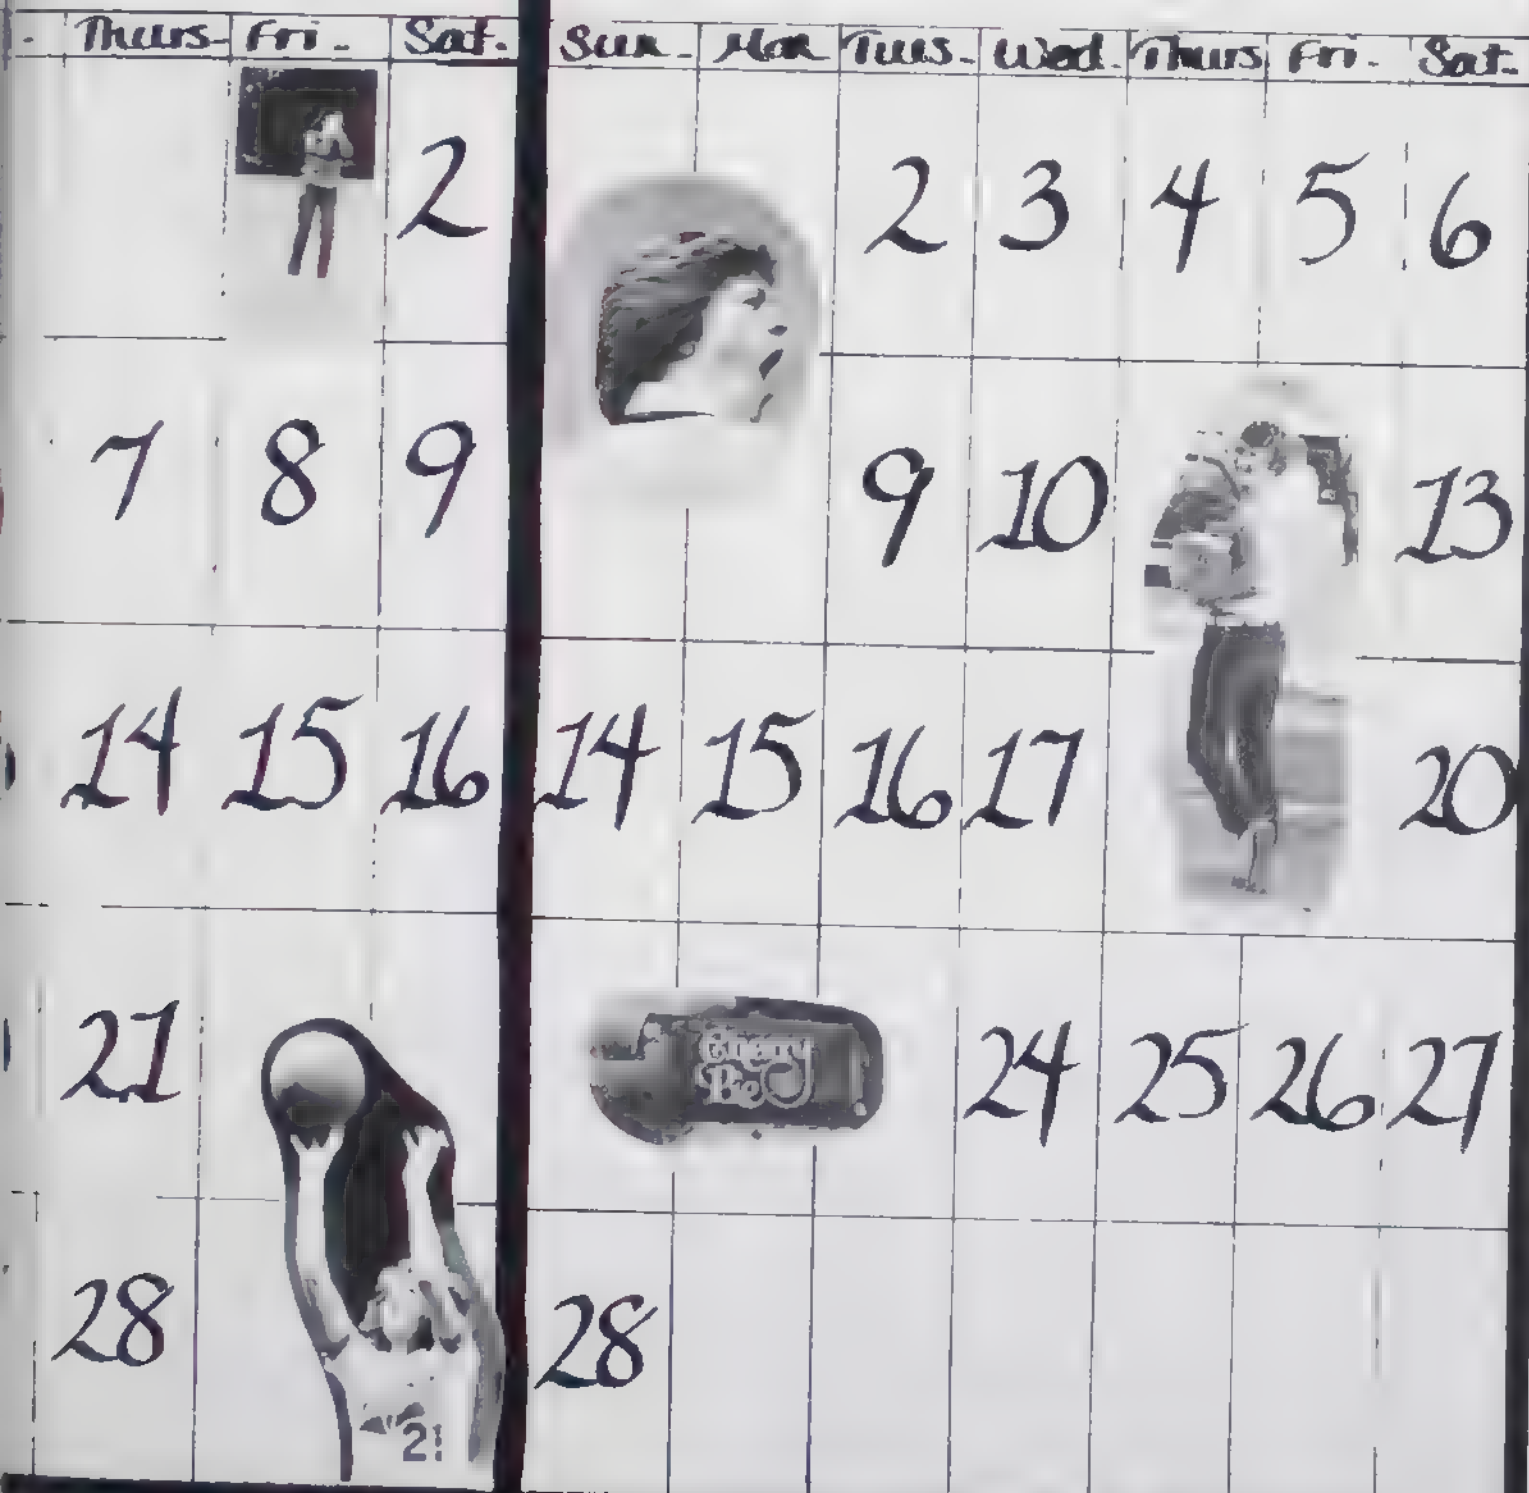 Thurs. Fri. Sat.
2
7 8 9
14 15 16
21
28
21
Sun. Mon Tues. Wed. Thurs Fri. Sat.
2 3 4 5 6
9 10 13
14 15 16 17 20
24 25 26 27
28